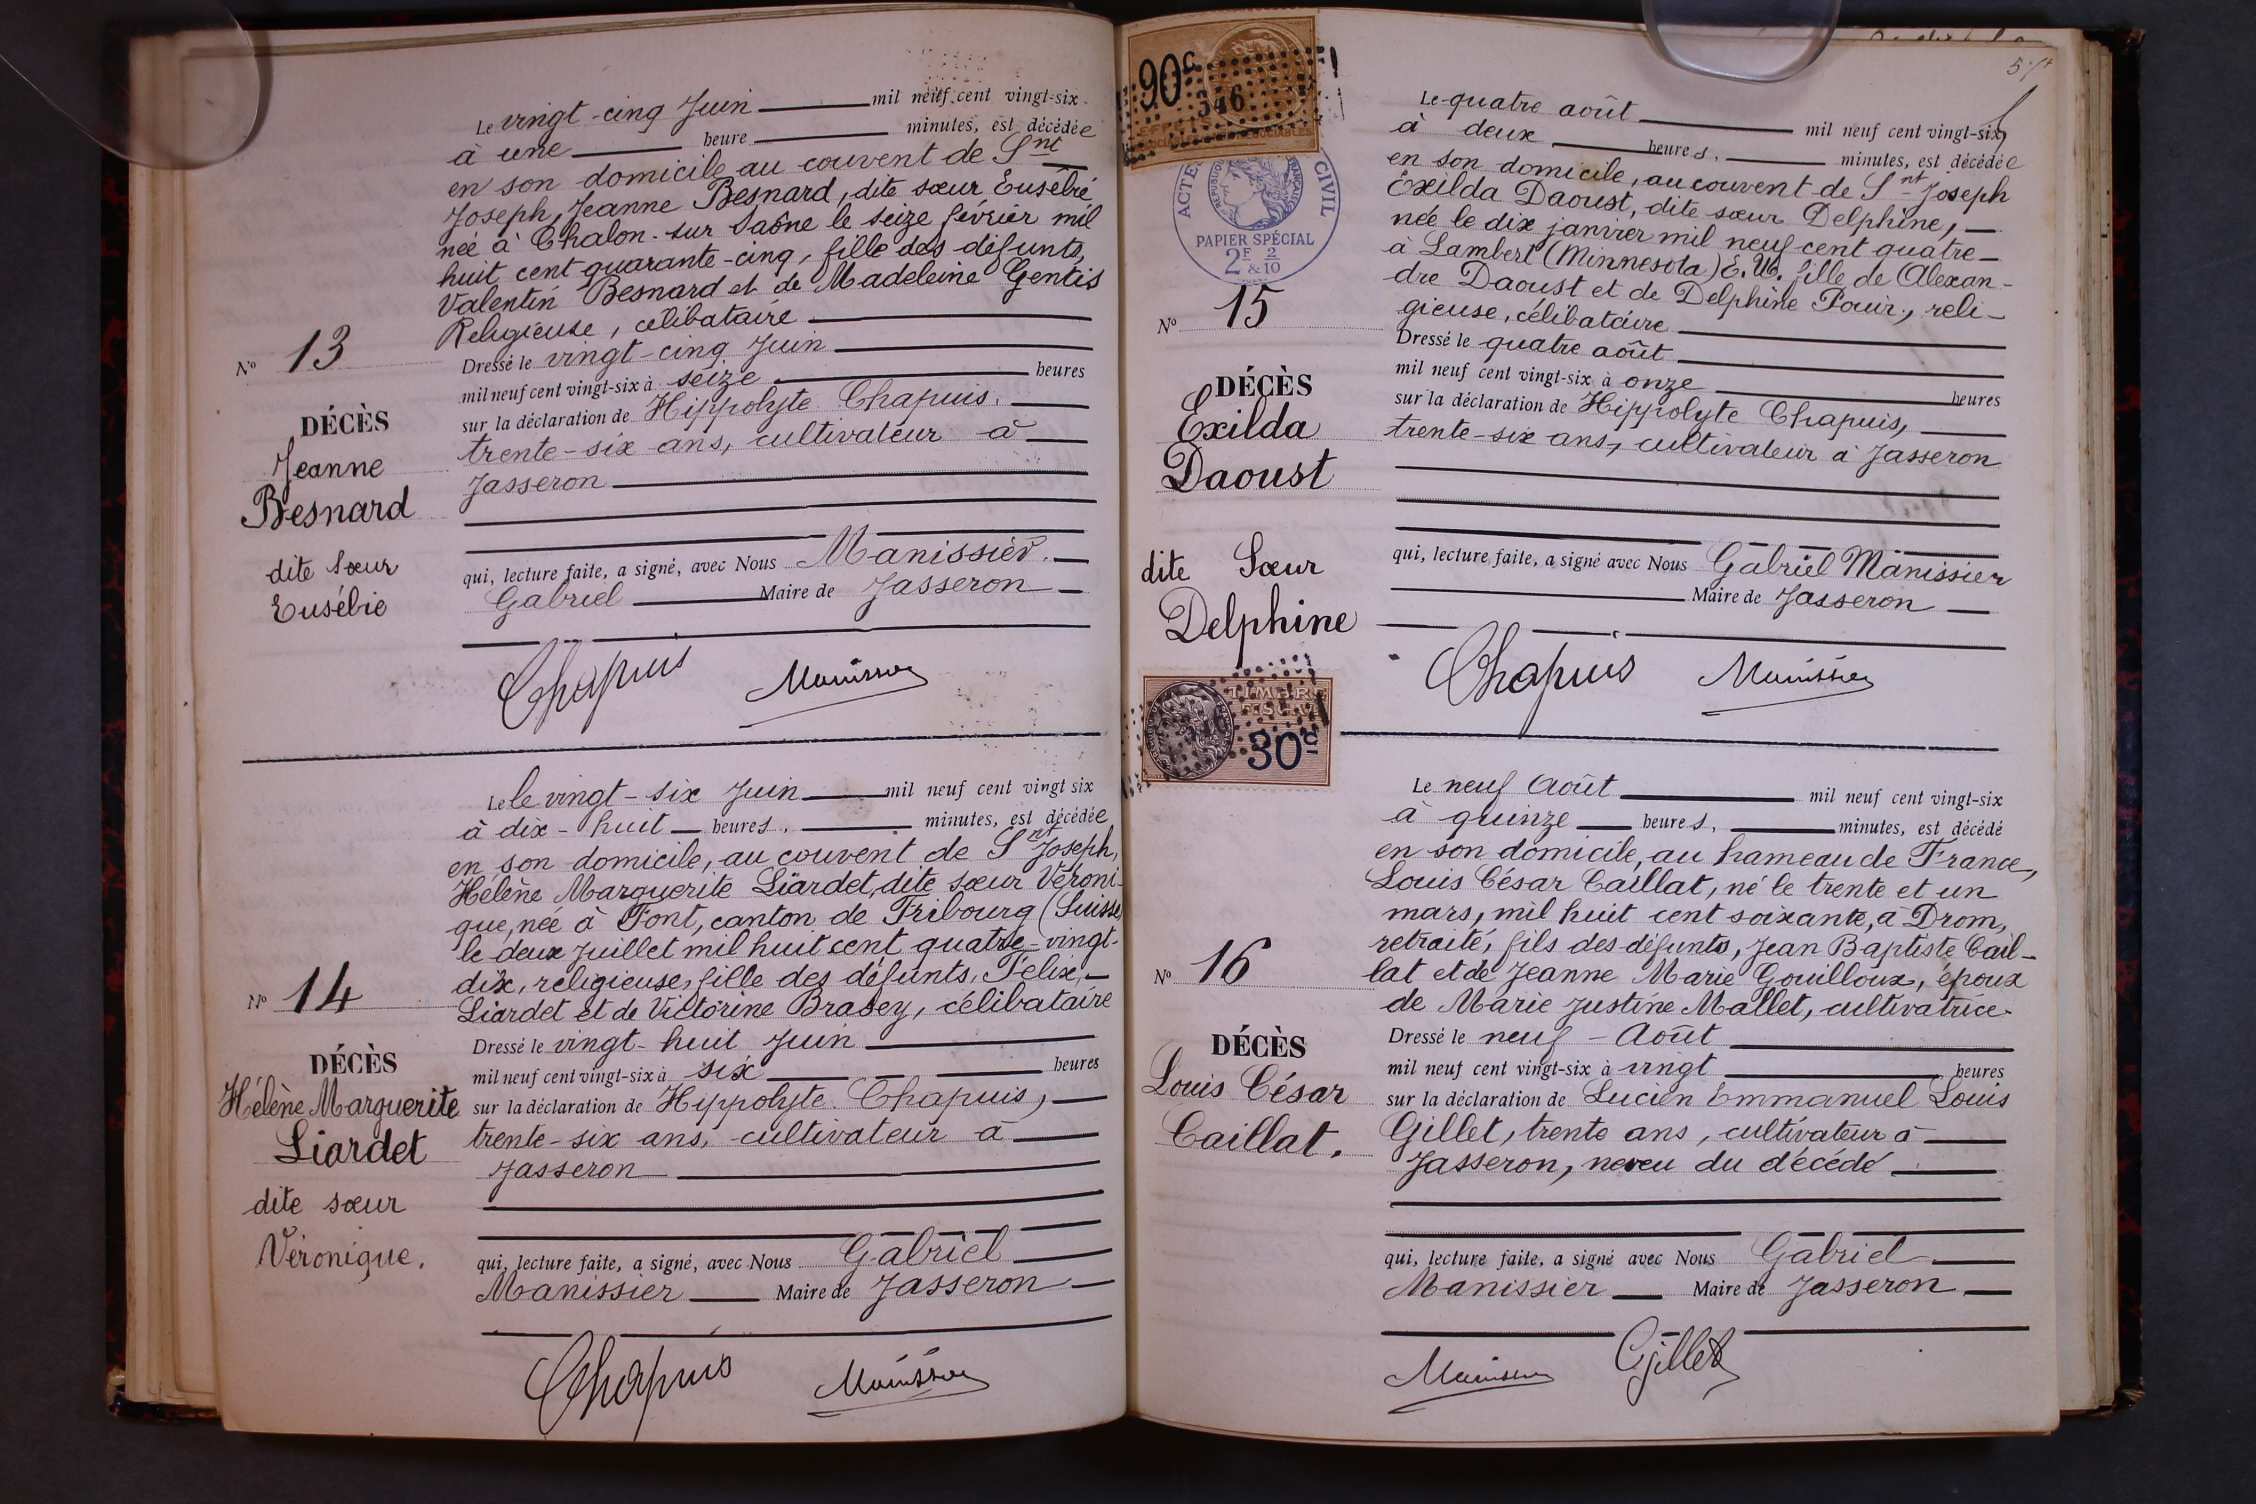 Le vingt-cinq Juin mil neuf cent vingt-six
à une heure minutes, est décédée
en son domicile au couvent de Snt
Joseph, Jeanne Besnard, dite sœur Eusébie
née à Chalon-sur Saône le seize février mil
huit cent quarante-cinq, fille des défunts,
Valentin Besnard et de Madeleine Gentis
Religieuse, célibataire
Nº 13
Dressé le vingt-cinq Juin
mil neuf cent vingt-six à seize heures
sur la déclaration de Hippolyte Chapuis,
trente-six ans, cultivateur à
Jasseron
DÉCÈS
Jeanne
Besnard
dite Sœur
Eusébie
qui, lecture faite, a signé, avec Nous Manissier
Gabriel Maire de Jasseron
Chapuis Manissier
Le le vingt-six Juin mil neuf cent vingt six
à dix-huit heures, minutes, est décédée
en son domicile, au couvent de Snt Joseph,
Hélène Marguerite Liardet, dite sœur Véroni-
que, née à Font, canton de Fribourg (Suisse
le deux Juillet mil huit cent quatre-vingt-
dix, religieuse, fille des défunts, Félix,
Liardet et de Victorine Brasey, célibataire
Nº 14
Dressé le vingt-huit Juin
mil neuf cent vingt-six à six heures
sur la déclaration de Hippolyte Chapuis,
trente-six ans, cultivateur à
Jasseron
DÉCÈS
Hélène Marguerite
Liardet
dite sœur
Véronique.
qui, lecture faite, a signé, avec Nous Gabriel
Manissier Maire de Jasseron
Chapuis Manissier
90c
346
ACTE CIVIL
PAPIER SPÉCIAL
2F & 2/10
Le quatre août mil neuf cent vingt-six
à deux heures, minutes, est décédée
en son domicile, au couvent de Snt Joseph
Exilda Daoust, dite sœur Delphine,
née le dix janvier mil neuf cent quatre
à Lambert (Minnesota) E.U. fille de Alexan-
dre Daoust et de Delphine Pouir, reli-
gieuse, célibataire
Nº 15
Dressé le quatre août
mil neuf cent vingt-six à onze heures
sur la déclaration de Hippolyte Chapuis,
trente-six ans, cultivateur à Jasseron
DÉCÈS
Exilda
Daoust
dite Sœur
Delphine
qui, lecture faite, a signé avec Nous Gabriel Manissier
Maire de Jasseron
Chapuis Manissier
TIMBRE
FISCAL
30c
Le neuf Août mil neuf cent vingt-six
à quinze heures, minutes, est décédé
en son domicile, au hameau de France,
Louis César Caillat, né le trente et un
mars, mil huit cent soixante, à Drom,
retraité, fils des défunts, Jean Baptiste Cail-
lat et de Jeanne Marie Gouilloux, époux
de Marie Justine Mallet, cultivatrice.
Nº 16
Dressé le neuf - Août
mil neuf cent vingt-six à vingt heures
sur la déclaration de Lucien Emmanuel Louis
Gillet, trente ans, cultivateur à
Jasseron, neveu du décédé
DÉCÈS
Louis César
Caillat.
qui, lecture faite, a signé avec Nous Gabriel
Manissier Maire de Jasseron
Manissier Gillet